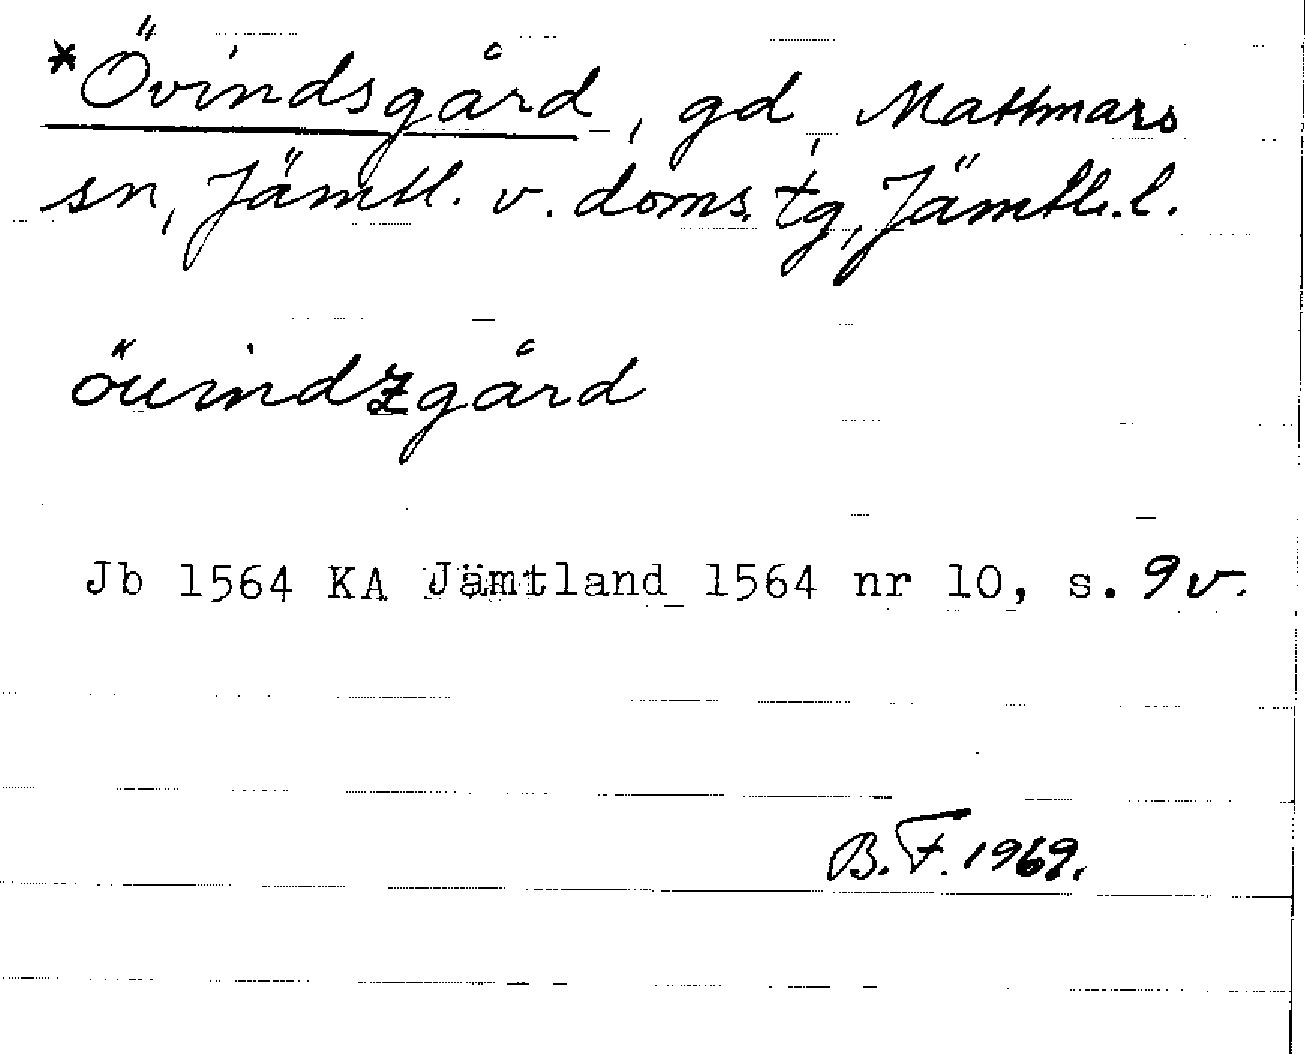 *Övindsgård, gd, Mattmars
sn, Jämtl. v. doms. tg, Jämtl. l.
öuindzgård
Jb 1564 KA Jämtland 1564 nr 10, s. 9v.
B. F. 1969.